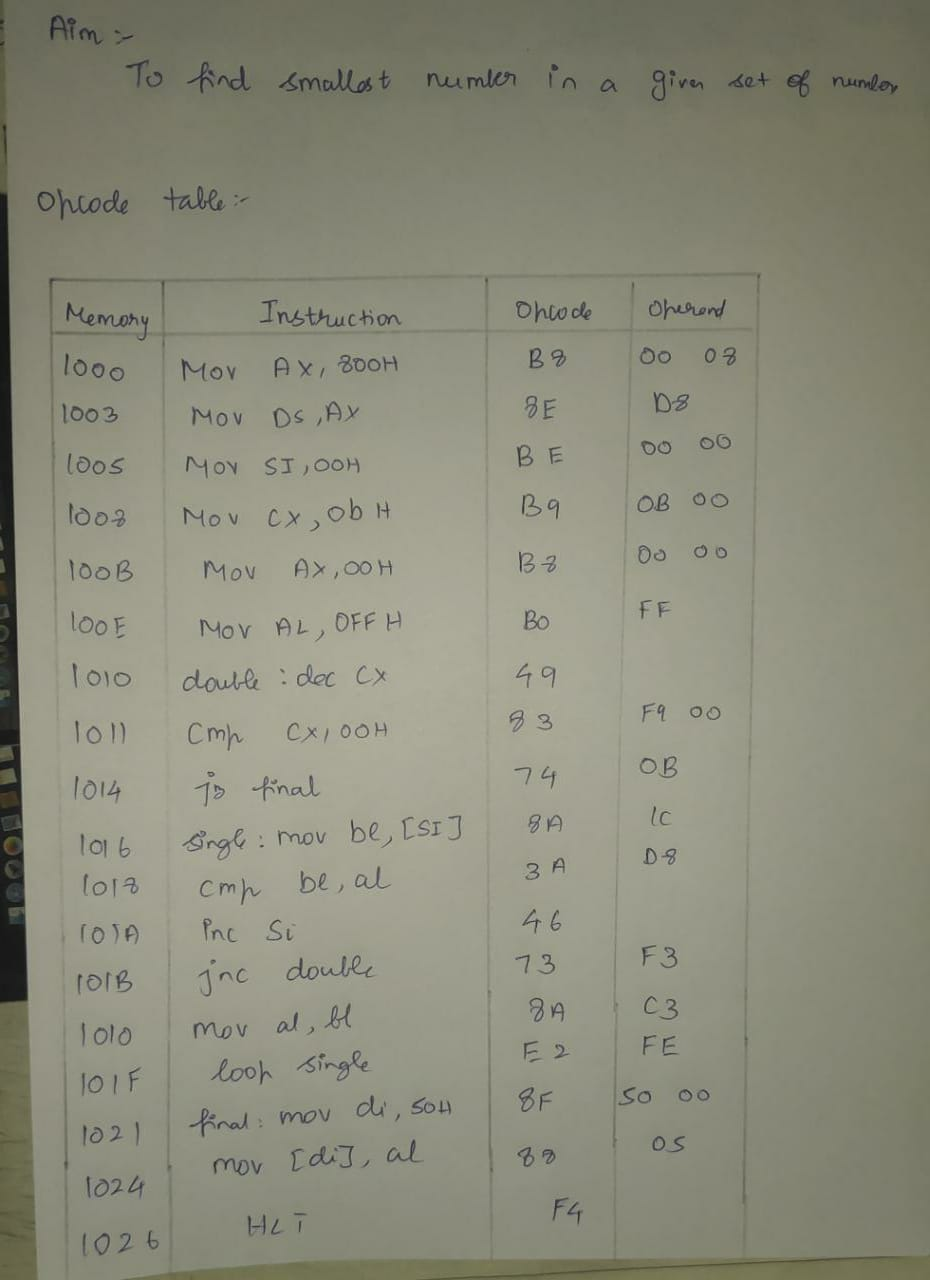 Aim :-
To find smallest number in a given set of number
Opcode table :-
Memory Instruction Opcode Operand
1000 Mov AX, 800H B8 00 08
1003 Mov DS, AX 8E D8
1005 Mov SI, 00H BE 00 00
1008 Mov CX, 0bH B9 0B 00
100B Mov AX, 00H B8 00 00
100E Mov AL, 0FFH B0 FF
1010 double : dec CX 49
1011 Cmp CX, 00H 83 F9 00
1014 jz final 74 0B
1016 single : mov bl, [SI] 8A 1C
1018 cmp bl, al 3A D8
101A inc Si 46
101B jnc double 73 F3
1010 mov al, bl 8A C3
101F loop single E2 FE
1021 final : mov di, 50H 8F 50 00
1024 mov [di], al 88 05
1026 HLT F4